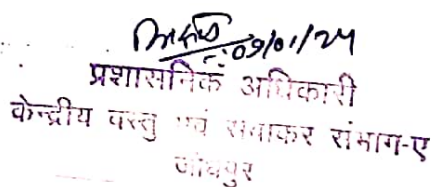 09/01/24
प्रशासनिक अधिकारी
केन्द्रीय वस्तु एवं सेवाकर संभाग-ए
जोधपुर